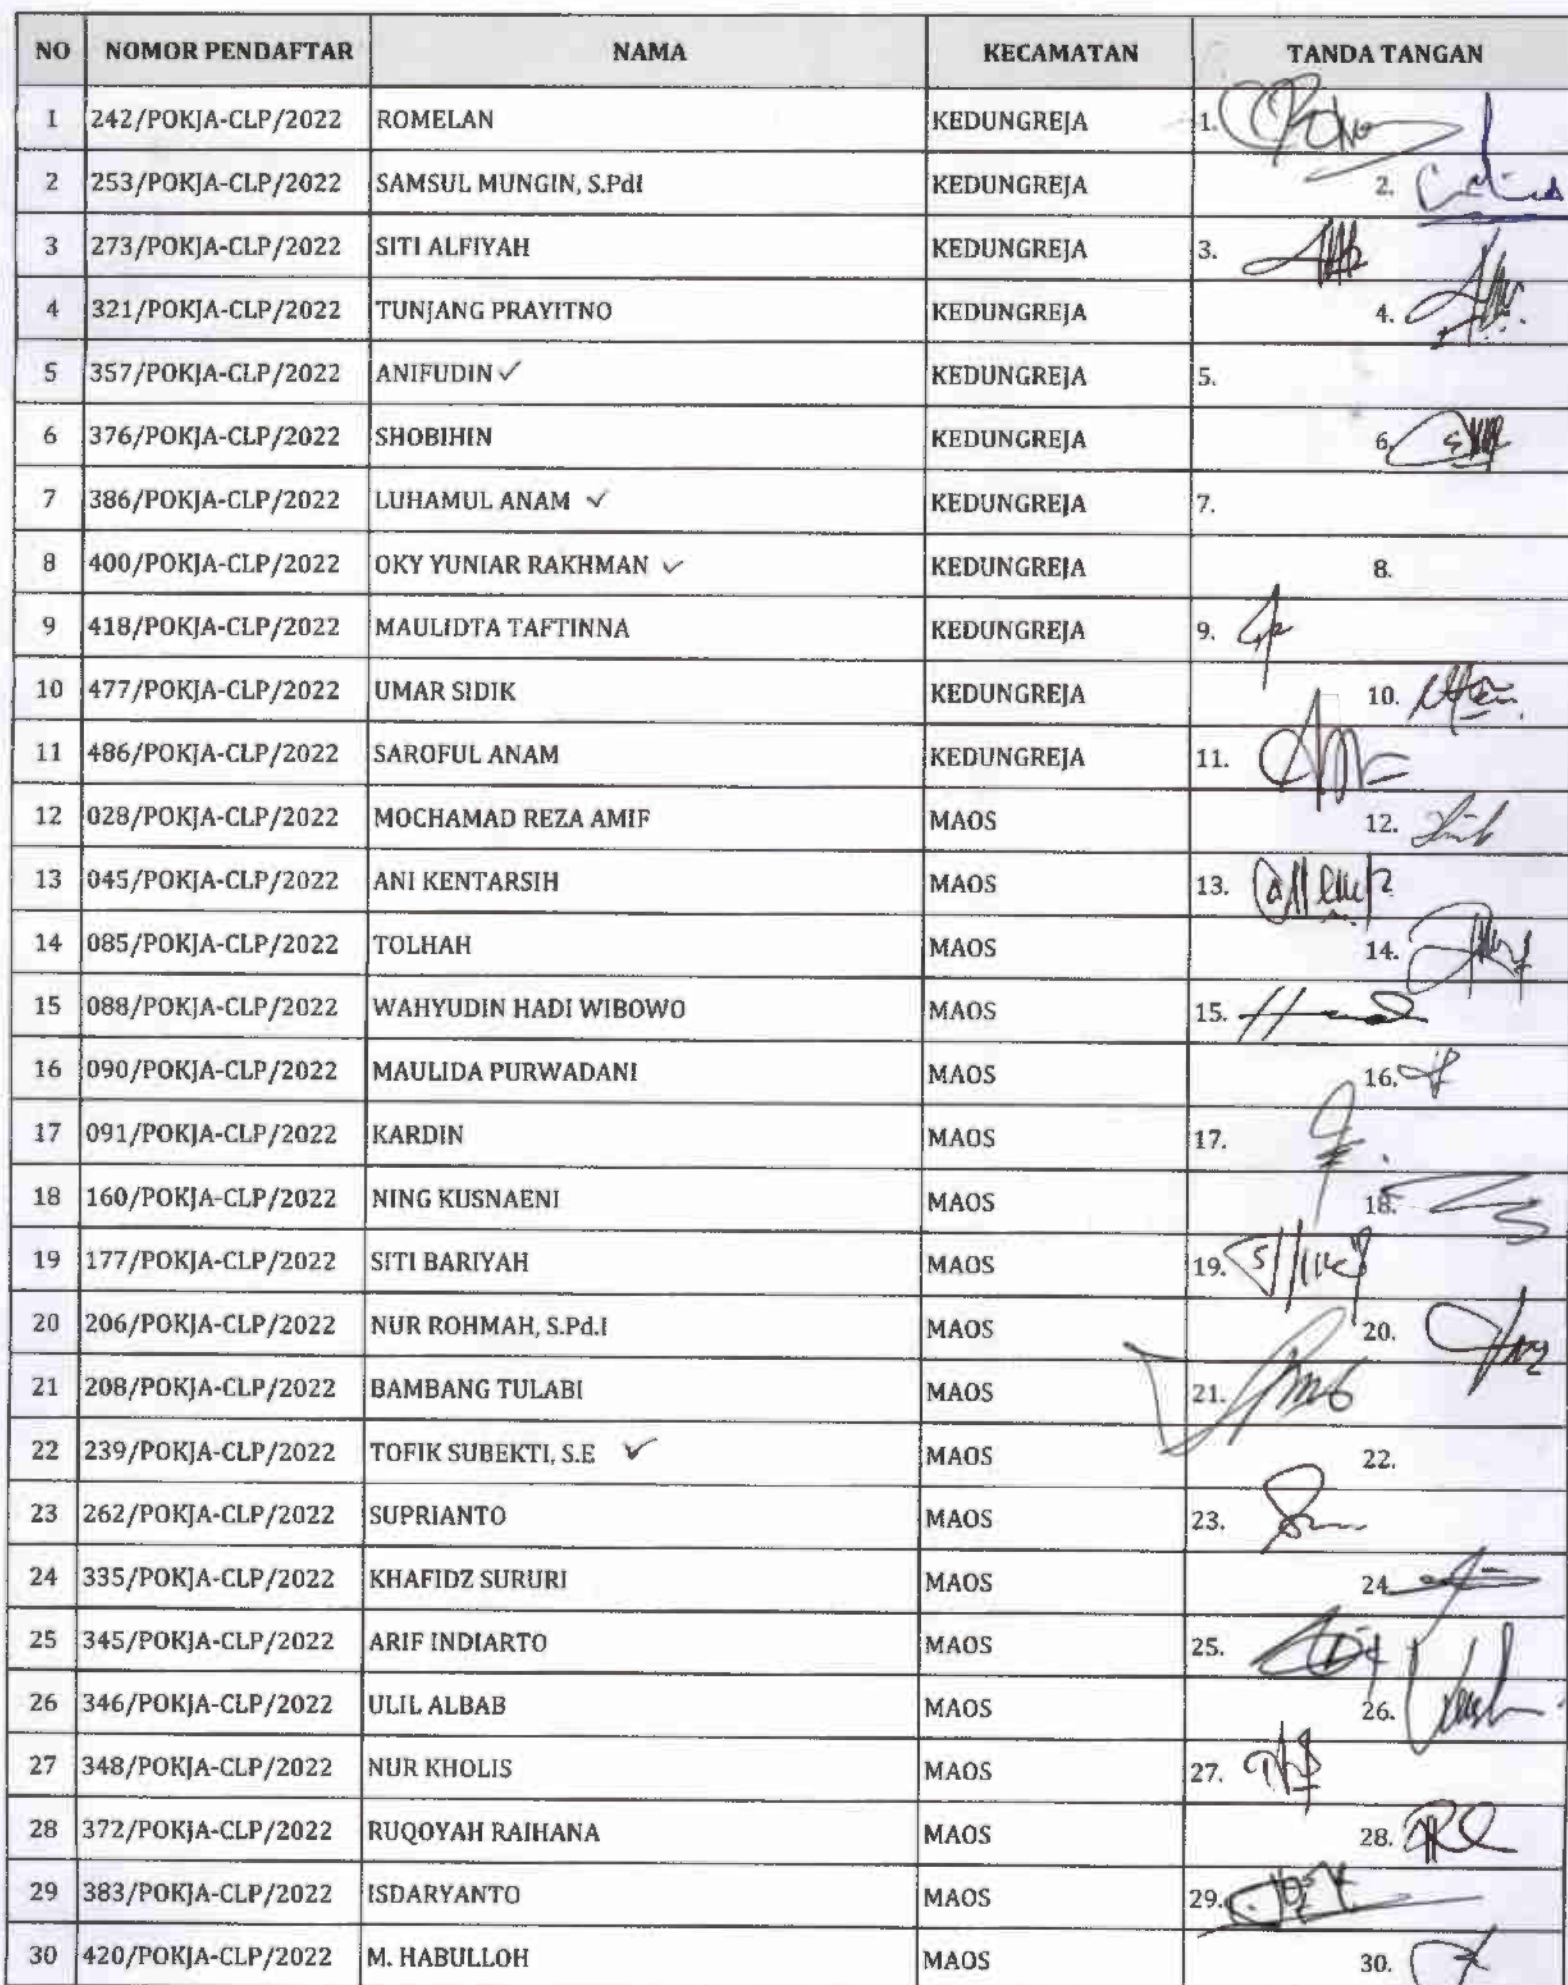 NO NOMOR PENDAFTAR NAMA KECAMATAN TANDA TANGAN
1 242/POKJA-CLP/2022 ROMELAN KEDUNGREJA 1.
2 253/POKJA-CLP/2022 SAMSUL MUNGIN, S.PdI KEDUNGREJA 2.
3 273/POKJA-CLP/2022 SITI ALFIYAH KEDUNGREJA 3.
4 321/POKJA-CLP/2022 TUNJANG PRAYITNO KEDUNGREJA 4.
5 357/POKJA-CLP/2022 ANIFUDIN ✓ KEDUNGREJA 5.
6 376/POKJA-CLP/2022 SHOBIHIN KEDUNGREJA 6.
7 386/POKJA-CLP/2022 LUHAMUL ANAM ✓ KEDUNGREJA 7.
8 400/POKJA-CLP/2022 OKY YUNIAR RAKHMAN ✓ KEDUNGREJA 8.
9 418/POKJA-CLP/2022 MAULIDTA TAFTINNA KEDUNGREJA 9.
10 477/POKJA-CLP/2022 UMAR SIDIK KEDUNGREJA 10.
11 486/POKJA-CLP/2022 SAROFUL ANAM KEDUNGREJA 11.
12 028/POKJA-CLP/2022 MOCHAMAD REZA AMIF MAOS 12.
13 045/POKJA-CLP/2022 ANI KENTARSIH MAOS 13.
14 085/POKJA-CLP/2022 TOLHAH MAOS 14.
15 088/POKJA-CLP/2022 WAHYUDIN HADI WIBOWO MAOS 15.
16 090/POKJA-CLP/2022 MAULIDA PURWADANI MAOS 16.
17 091/POKJA-CLP/2022 KARDIN MAOS 17.
18 160/POKJA-CLP/2022 NING KUSNAENI MAOS 18.
19 177/POKJA-CLP/2022 SITI BARIYAH MAOS 19.
20 206/POKJA-CLP/2022 NUR ROHMAH, S.Pd.I MAOS 20.
21 208/POKJA-CLP/2022 BAMBANG TULABI MAOS 21.
22 239/POKJA-CLP/2022 TOFIK SUBEKTI, S.E ✓ MAOS 22.
23 262/POKJA-CLP/2022 SUPRIANTO MAOS 23.
24 335/POKJA-CLP/2022 KHAFIDZ SURURI MAOS 24.
25 345/POKJA-CLP/2022 ARIF INDIARTO MAOS 25.
26 346/POKJA-CLP/2022 ULIL ALBAB MAOS 26.
27 348/POKJA-CLP/2022 NUR KHOLIS MAOS 27.
28 372/POKJA-CLP/2022 RUQOYAH RAIHANA MAOS 28.
29 383/POKJA-CLP/2022 ISDARYANTO MAOS 29.
30 420/POKJA-CLP/2022 M. HABULLOH MAOS 30.